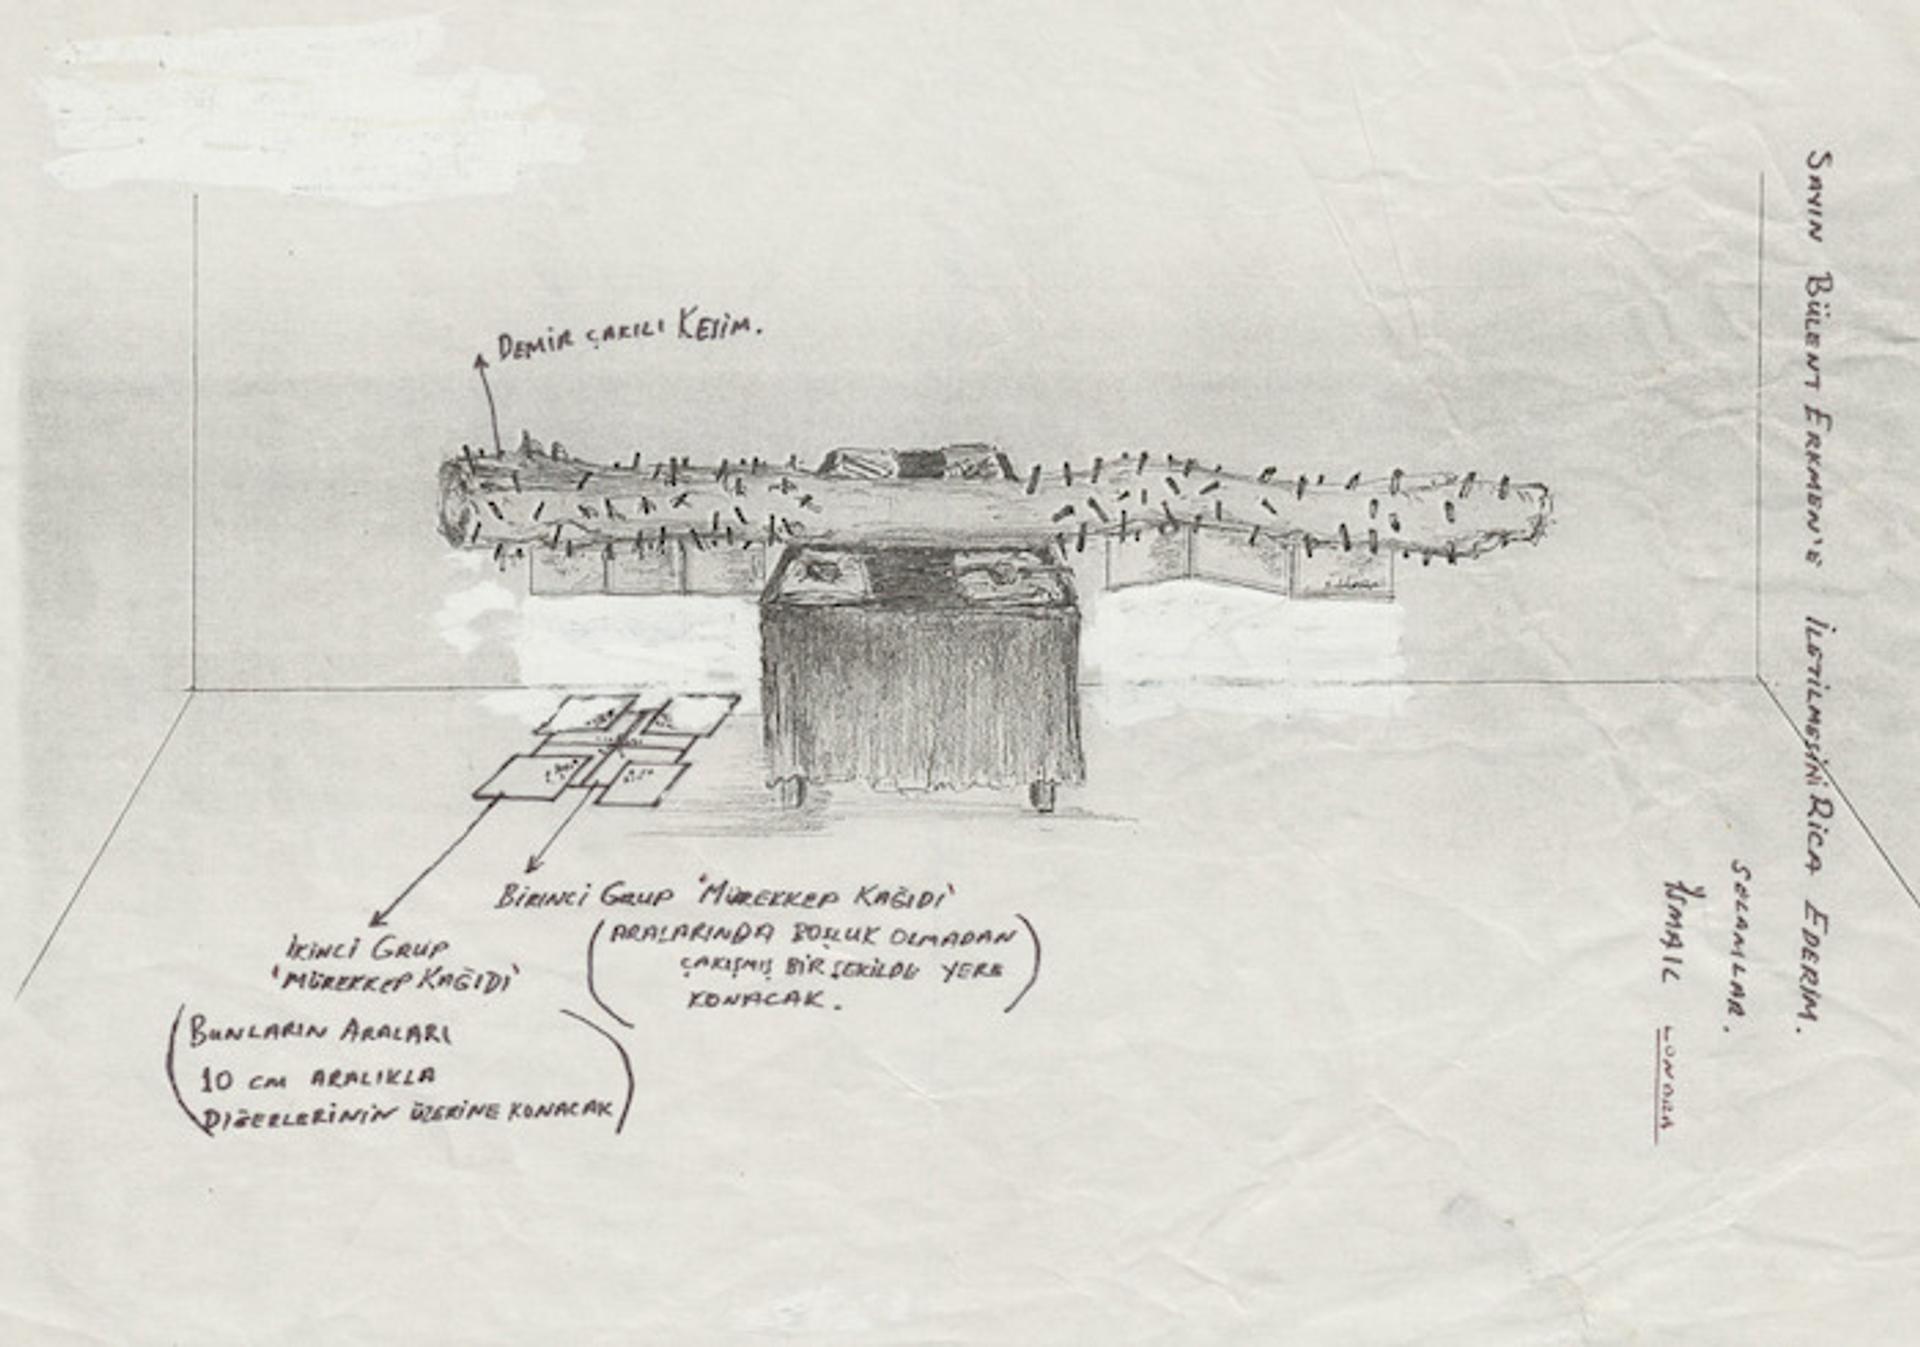 DEMİR ÇAKILI KESİM.
BİRİNCİ GRUP 'MÜREKKEP KAĞIDI'
(ARALARINDA BOŞLUK OLMADAN
ÇAKIŞMIŞ BİR ŞEKİLDE YERE
KONACAK.)
İKİNCİ GRUP
'MÜREKKEP KAĞIDI'
(BUNLARIN ARALARI
10 CM ARALIKLA
DİĞERLERİNİN ÜZERİNE KONACAK)
SAYIN BÜLENT ERKMEN'E İLETİLMESİNİ RİCA EDERİM.
SELAMLAR.
İSMAİL LONDRA